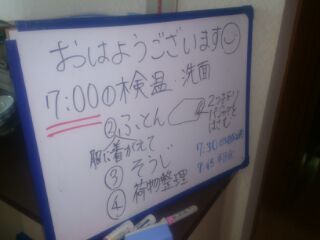 おはようございます
7:00 ①検温・洗面
②ふとん
服に着がえて
③そうじ
④荷物整理
2つ折り
はさむ
7:30
7:45